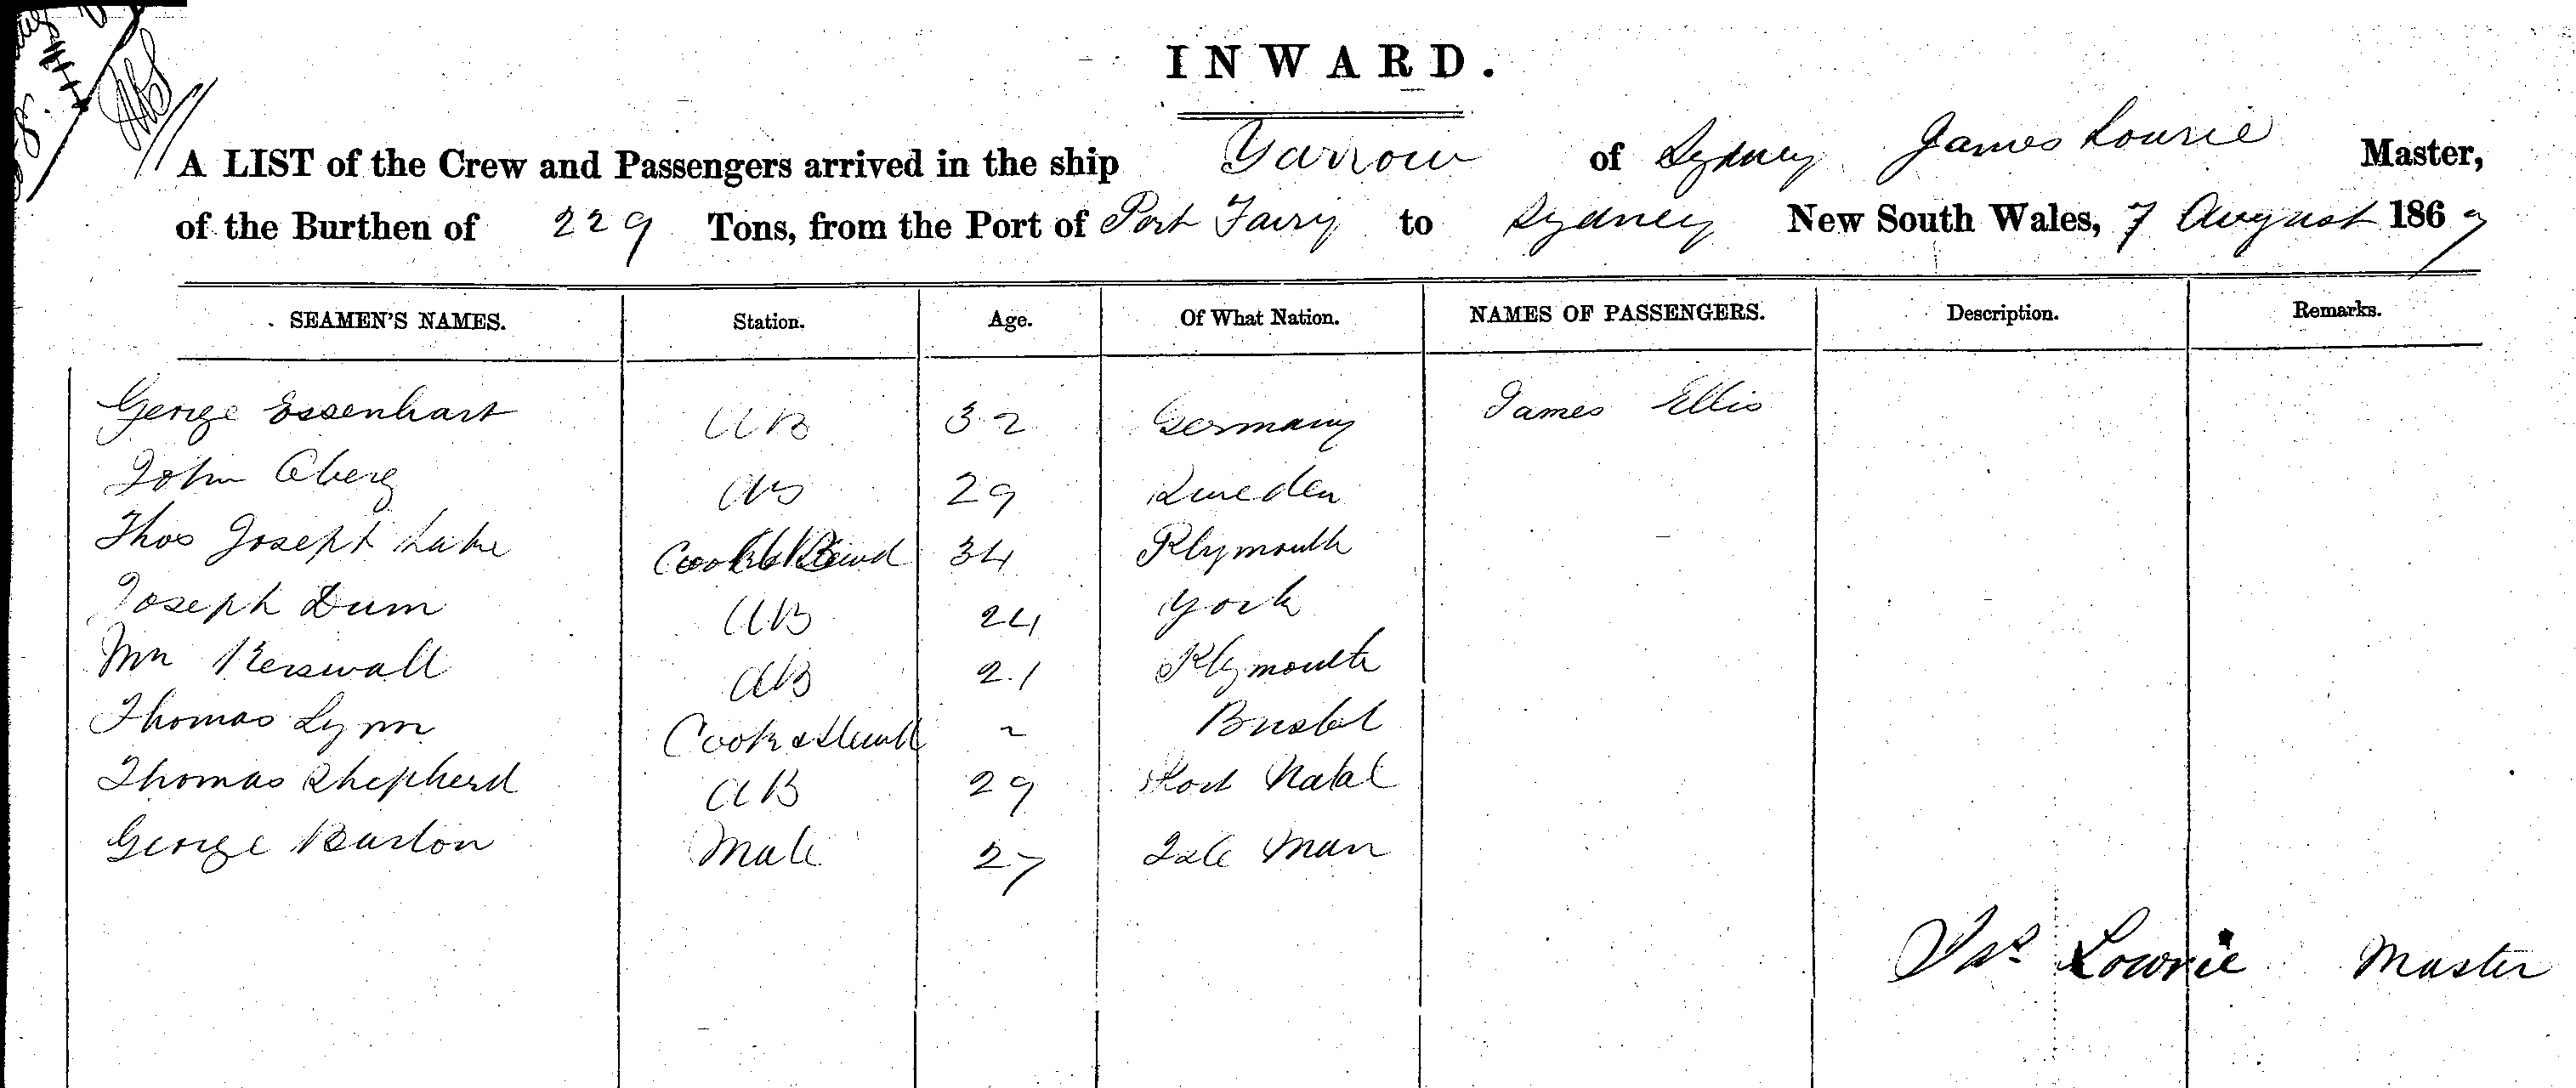 INWARD.
A LIST of the Crew and Passengers arrived in the ship Yarrow of Sydney James Lowrie Master,
of the Burthen of 229 Tons, from the Port of Port Fairy to Sydney New South Wales, 7 August 1867
SEAMEN'S NAMES. Station. Age. Of What Nation. NAMES OF PASSENGERS. Description. Remarks.
George Essenhart AB 32 Germany James Ellis
John Oberg AB 29 Sweden
Thos Joseph Luke Cook & Stewd 34 Plymouth
Joseph Dunn AB 24 York
Wm Kerswall AB 21 Plymouth
Thomas Lynn Cook & Stewd ~ Bristol
Thomas Shepherd AB 29 Port Natal
George Barton Mate 27 Isle Man
Jas Lowrie Master